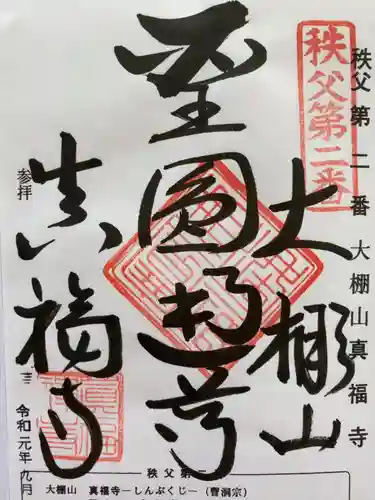 秩父第二番 大棚山真福寺
秩父第二番
大棚山
聖圓通尊
真福寺
参拝
令和元年九月
秩父第二
大棚山 真福寺―しんぷくじ―(曹洞宗)